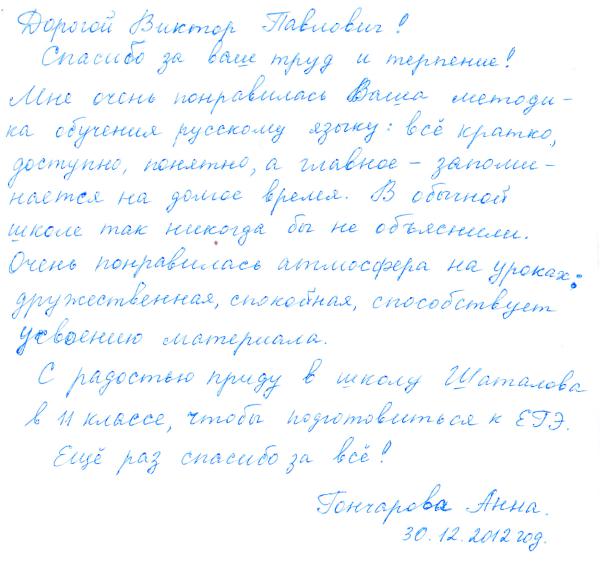 Дорогой Виктор Павлович!
Спасибо за ваш труд и терпение!
Мне очень понравилась Ваша методи-
ка обучения русскому языку: всё кратко,
доступно, понятно, а главное – запоми-
нается на долгое время. В обычной
школе так никогда бы не объяснили.
Очень понравилась атмосфера на уроках:
дружественная, спокойная, способствует
усвоению материала.
С радостью приду в школу Шаталова
в 11 классе, чтобы подготовиться к ЕГЭ.
Ещё раз спасибо за всё!
Гончарова Анна.
30.12.2012 год.